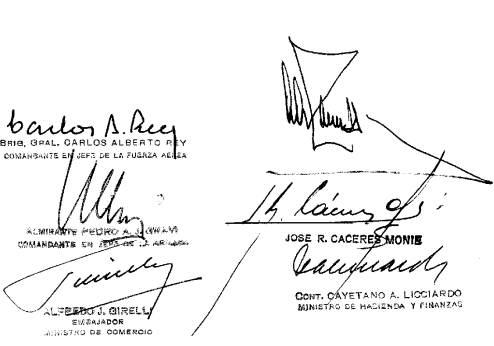 Carlos A. Rey
BRIG. GRAL. CARLOS ALBERTO REY
COMANDANTE EN JEFE DE LA FUERZA AEREA
ALMIRANTE PEDRO A. J. GNAVI
COMANDANTE EN JEFE DE LA ARMADA
ALFREDO J. GIRELLI
EMBAJADOR
MINISTRO DE COMERCIO
JOSE R. CACERES MONIE
CONT. CAYETANO A. LICCIARDO
MINISTRO DE HACIENDA Y FINANZAS